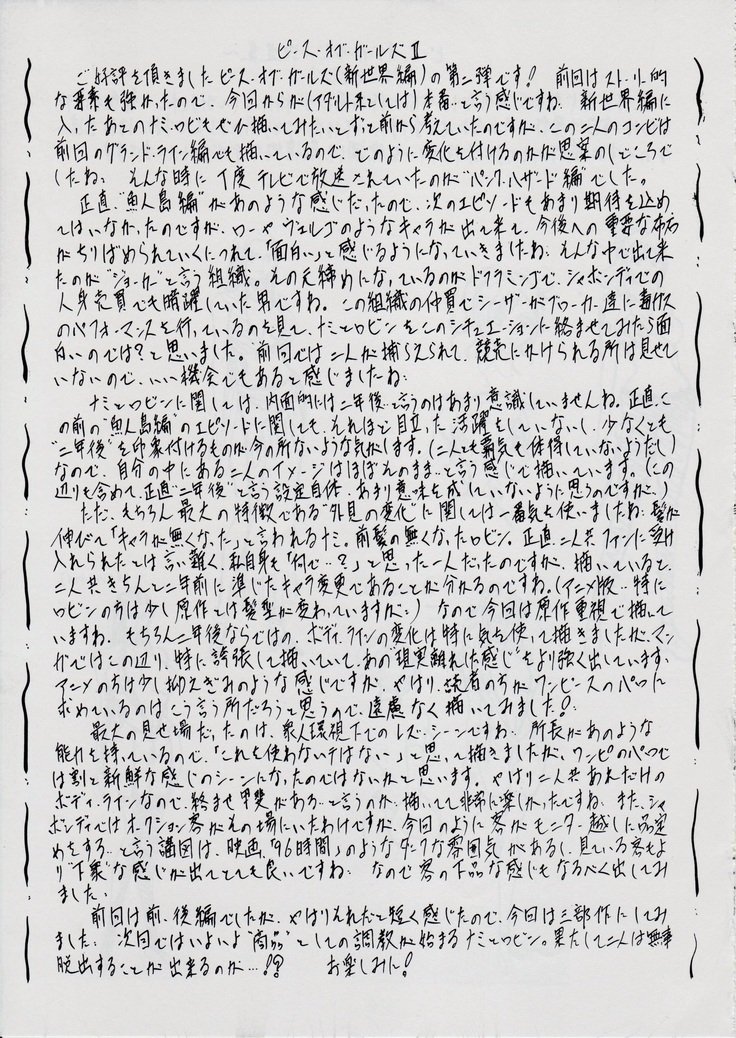 ピース・オブ・ガールズⅡ
ご好評を頂きましたピース・オブ・ガールズ(新世界編)の第二弾です! 前回はストーリー的
な要素も強かったので、今回からが(アダルト本としては)本番…と言う感じですね。 新世界編に
入ったあとのナミ、ロビンもぜひ描いてみたいとずっと前から考えていたのですが、この二人のコンビは
前回のグランド・ライン編でも描いているので、どのように変化を付けるのかが思案のしどころで
したね。 そんな時に丁度テレビで放送されていたのが“パンク・ハザード編”でした。
正直、“魚人島編”があのような感じだったので、次のエピソードもあまり期待を込め
てはいなかったのですが、ローやヴェルゴのようなキャラが出て来て、今後への重要な布石
がちりばめられていくにつれて、「面白い」と感じるようになっていきましたね。そんな中で出て来
たのが“ジョーカー”と言う組織。その元締めになっているのがドフラミンゴで、シャボンディでの
人身売買でも暗躍していた男ですね。この組織の仲買でシーザーがブローカー達に毒ガス
のパフォーマンスを行っているのを見て、ナミとロビンをこのシチュエーションに絡ませてみたら面
白いのでは?と思いました。前回では二人が捕らえられて、競売にかけられる所は見せて
いないので、いい機会でもあると感じましたね。
ナミとロビンに関しては、内面的には二年後…と言うのはあまり意識していませんね。正直、こ
の前の“魚人島編”のエピソードに関しても、それほど目立った活躍をしていないし、少なくとも
“二年後”を印象付けるものが今の所ないような気がします。(二人とも覇気も体得していないようだし)
なので、自分の中にある二人のイメージはほぼそのまま…と言う感じで描いています。(この
辺りも含めて、正直“二年後”と言う設定自体、あまり意味を成していないように思うのですが。)
ただ、もちろん最大の特徴である“外見の変化”に関しては一番気を使いましたね。髪が
伸びて「キャラが無くなった」と言われるナミ。前髪の無くなったロビン。正直二人共ファンに受け
入れられたとは言い難く、私自身も「何で…?」と思った一人だったのですが、描いていると、
二人共きちんと二年前に準じたキャラ変更であることが分かるのですね。(アニメ版…特に
ロビンの方は少し原作とは髪型が変わっていますが。) なので今回は原作重視で描いて
いますね。もちろん二年後ならではの、ボディ・ラインの変化は特に気を使って描きましたが、マン
ガではこの辺り、特に誇張して描いていて、あの“現実離れした感じ”をより強く出しています。
アニメの方は少し抑えぎみのような感じですが、やはり、読者の方がワンピースのパロに
求めているのはこう言う所だろうと思うので、遠慮なく描いてみました!
最大の見せ場だったのは、衆人環視下でのレズ・シーンですね。 所長があのような
能力を持っているので、「これを使わない手はない」と思って描きましたが、ワンピのパロで
は割と新鮮な感じのシーンになったのではないかと思います。やはり二人共あれだけの
ボディ・ラインなので、絡ませ甲斐がある…と言うのか、描いてて非常に楽しかったですね。また、シャ
ボンディではオークション客がその場にいたわけですが、今回のように客がモニター越しに品定
めをする…と言う構図は、映画、「96時間」のようなダークな雰囲気があるし、見ている客もよ
り“下衆”な感じが出てとても良いですね。 なので客の下品な感じもなるべく出してみ
ました。
前回は前、後編でしたが、やはりそれだと短く感じたので、今回は三部作にしてみ
ました。 次回ではいよいよ“商品”としての調教が始まるナミとロビン。果たして二人は無事
脱出することが出来るのか…!? お楽しみに!